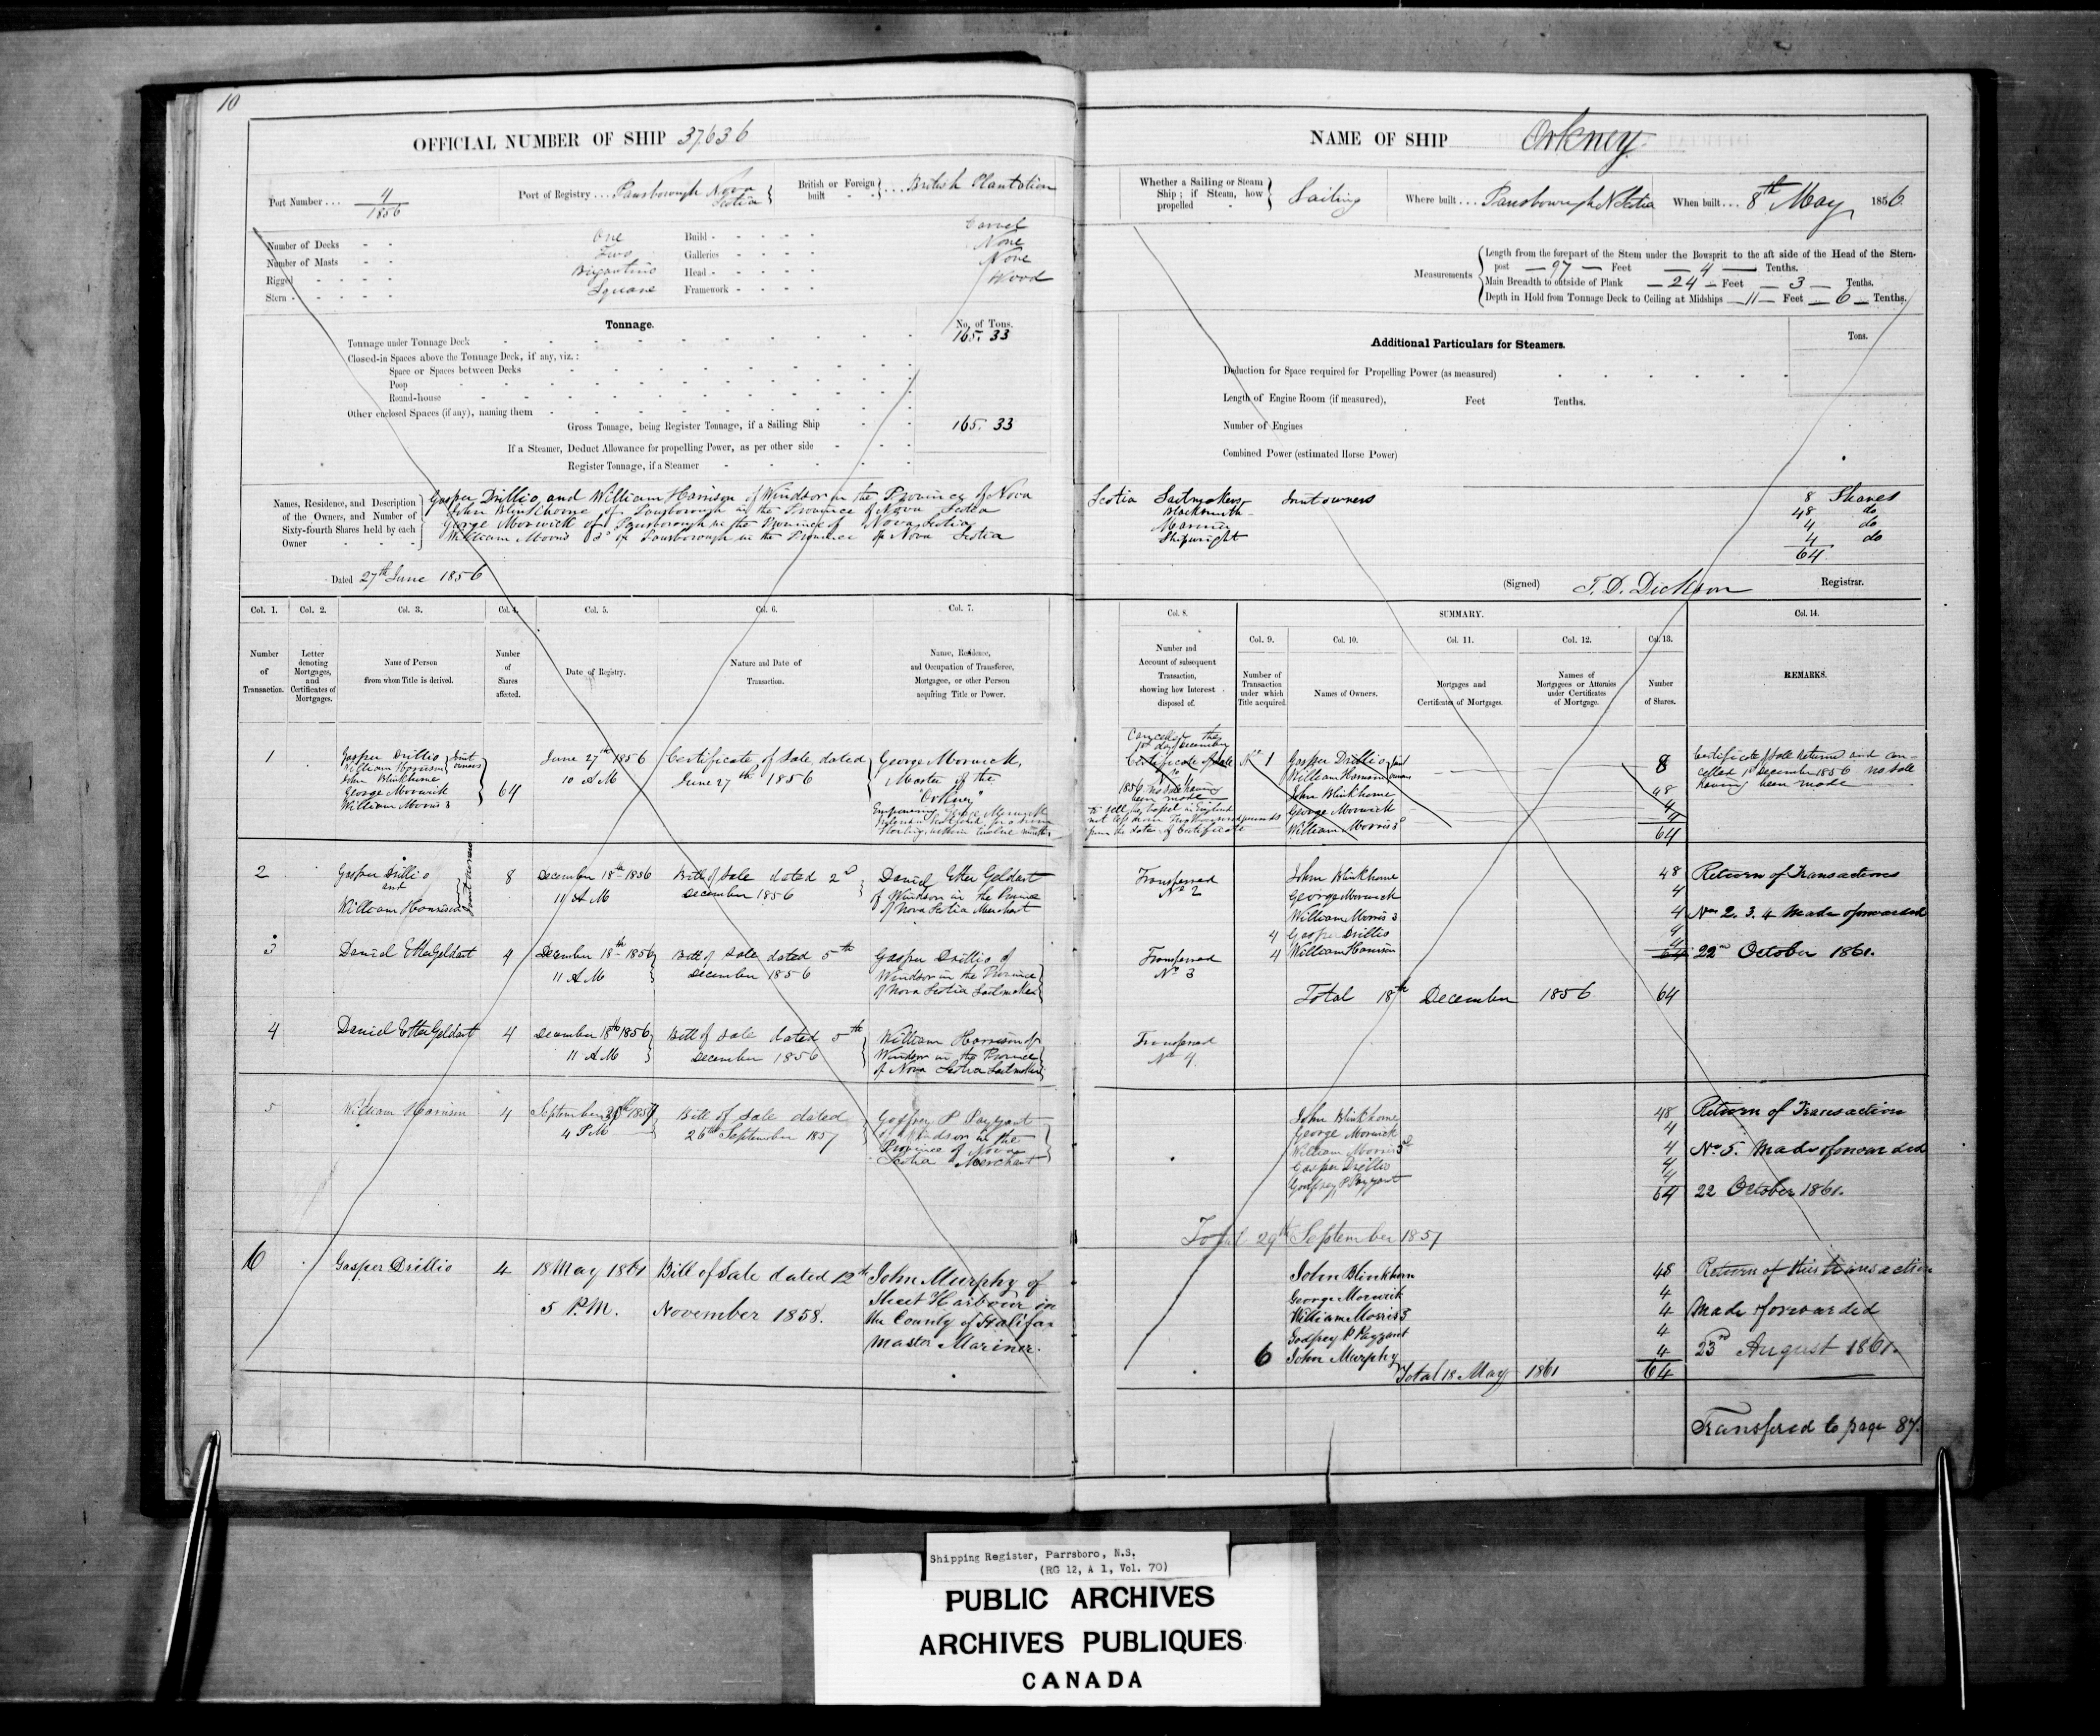 10
OFFICIAL NUMBER OF SHIP 37636
Port Number... 4/1856
Port of Registry... Parrsborough Nova Scotia
British or Foreign built ... British Plantation
Number of Decks - - One
Number of Masts - - Two
Rigged - - - - Brigantine
Stern - - - - - Square
Build - - - - - Carvel
Galleries - - - - None
Head - - - - - None
Framework - - - - Wood
Tonnage.
No. of Tons.
Tonnage under Tonnage Deck 165.33
Closed-in Spaces above the Tonnage Deck, if any, viz.:
Space or Spaces between Decks
Poop
Round-house
Other enclosed Spaces (if any), naming them
Gross Tonnage, being Register Tonnage, if a Sailing Ship 165.33
If a Steamer, Deduct Allowance for propelling Power, as per other side
Register Tonnage, if a Steamer
Names, Residence, and Description of the Owners, and Number of Sixty-fourth Shares held by each Owner
Gasper Drillio and William Harrison of Windsor in the Province of Nova
John Blinkhorne of Parrsborough in the Province of Nova Scotia
George Morwick of Parrsborough in the Province of Nova Scotia
William Morris 3d of Parrsborough in the Province of Nova Scotia
Dated 27th June 1856
Col. 1. Col. 2. Col. 3. Col. 4. Col. 5. Col. 6. Col. 7.
Number of Transaction.
Letter denoting Mortgages, and Certificates of Mortgages.
Name of Person from whom Title is derived.
Number of Shares affected.
Date of Registry.
Nature and Date of Transaction.
Name, Residence, and Occupation of Transferee, Mortgagee, or other Person acquiring Title or Power.
1
Gasper Drillio
William Harrison
Joint owners
John Blinkhorne
George Morwick
William Morris 3
64
June 27th 1856
10 A M
Certificate of Sale dated
June 27th 1856
George Morwick,
Master of the
"Orkney"
Empowering George Morwick
2
Gasper Drillio
and
William Harrison
Joint owners
8
December 18th 1856
11 A M
Bill of Sale dated 2d
December 1856
Daniel Etter Geldart
of Windsor in the Province
of Nova Scotia Merchant
3
Daniel Etter Geldart
4
December 18th 1856
11 A M
Bill of Sale dated 5th
December 1856
Gasper Drillio of
Windsor in the Province
of Nova Scotia Sailmaker
4
Daniel Etter Geldart
4
December 18th 1856
11 A M
Bill of Sale dated 5th
December 1856
William Harrison of
Windsor in the Province
of Nova Scotia Sailmaker
5
William Harrison
4
September 29th 1857
4 P M
Bill of Sale dated
26th September 1857
Godfrey P Payzant
of Windsor in the
Province of Nova
Scotia Merchant
6
Gasper Drillio
4
18 May 1861
5 P.M.
Bill of Sale dated 12th
November 1858.
John Murphy of
Sheet Harbour in
the County of Halifax
Master Mariner.
NAME OF SHIP Orkney
Whether a Sailing or Steam Ship; if Steam, how propelled - Sailing
Where built... Parrsborough N Scotia
When built... 8th May 1856
Measurements
Length from the forepart of the Stem under the Bowsprit to the aft side of the Head of the Stern-
post — 97 — Feet — 4 — Tenths.
Main Breadth to outside of Plank — 24 — Feet — 3 — Tenths.
Depth in Hold from Tonnage Deck to Ceiling at Midships — 11 — Feet — 6 — Tenths.
Additional Particulars for Steamers.
Tons.
Deduction for Space required for Propelling Power (as measured)
Length of Engine Room (if measured), Feet Tenths.
Number of Engines
Combined Power (estimated Horse Power)
Scotia Sailmakers Joint owners 8 Shares
Blacksmith 48 do
Mariner 4 do
Shipwright 4 do
64
(Signed) T. D. Dickson Registrar.
Col. 8. SUMMARY. Col. 14.
Col. 9. Col. 10. Col. 11. Col. 12. Col. 13.
Number and Account of subsequent Transaction, showing how Interest disposed of.
Number of Transaction under which Title acquired.
Names of Owners.
Mortgages and Certificates of Mortgages.
Names of Mortgagees or Attornies under Certificates of Mortgage.
Number of Shares.
REMARKS.
Cancelled this
1st day December
Certificate of Sale
1856 no Sale having
been made
No 1
Gasper Drillio
William Harrison
Joint owners
John Blinkhorne
George Morwick
William Morris 3d
8
48
4
4
64
Certificate of Sale returned and can-
celled 1st December 1856 no Sale
having been made
Transferred
No 2
John Blinkhorne 48
George Morwick 4
William Morris 3 4
4 Gasper Drillio 4
4 William Harrison 4
64
Return of Transactions
Nos 2. 3. 4 Made & forwarded
22nd October 1861.
Transferred
No 3
Total 18th December 1856 64
Transferred
No 4
John Blinkhorne 48
George Morwick 4
William Morris 3d 4
Gasper Drillio 4
Godfrey P Payzant 4
64
Return of Transaction
No 5. Made & forwarded
22 October 1861.
Total 29th September 1857
John Blinkhorn 48
George Morwick 4
William Morris 3 4
Godfrey P Payzant 4
6 John Murphy 4
Total 18 May 1861 64
Return of this transaction
Made & forwarded
23rd August 1861.
Transfered to page 87.
Shipping Register, Parrsboro, N.S.
(RG 12, A 1, Vol. 70)
PUBLIC ARCHIVES
ARCHIVES PUBLIQUES
CANADA